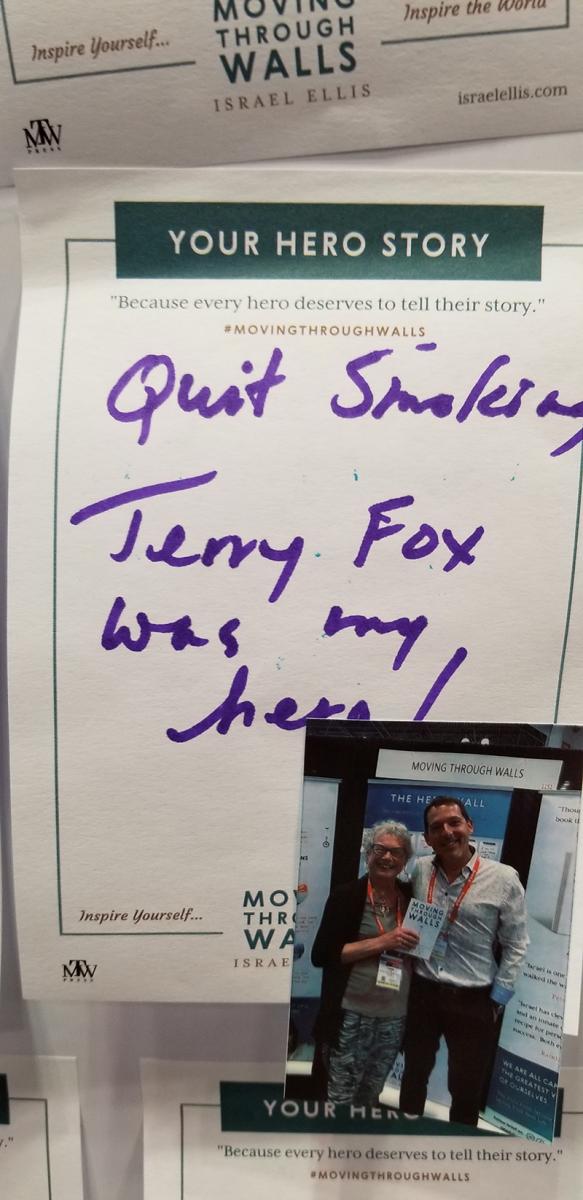 MOVING
Inspire Yourself... THROUGH Inspire the World
WALLS
ISRAEL ELLIS
israelellis.com
MTW
PRESS
YOUR HERO STORY
"Because every hero deserves to tell their story."
#MOVINGTHROUGHWALLS
Quit Smoking
Terry Fox
was my
hero!
MOVING THROUGH WALLS
THE HERO WALL
MOVING
THROUGH
WALLS
Inspire Yourself...
MO
THR
WA
ISRAE
MTW
PRESS
WE ARE ALL CA
THE GREATEST V
OF OURSELVES
YOUR HERO
"Because every hero deserves to tell their story."
#MOVINGTHROUGHWALLS